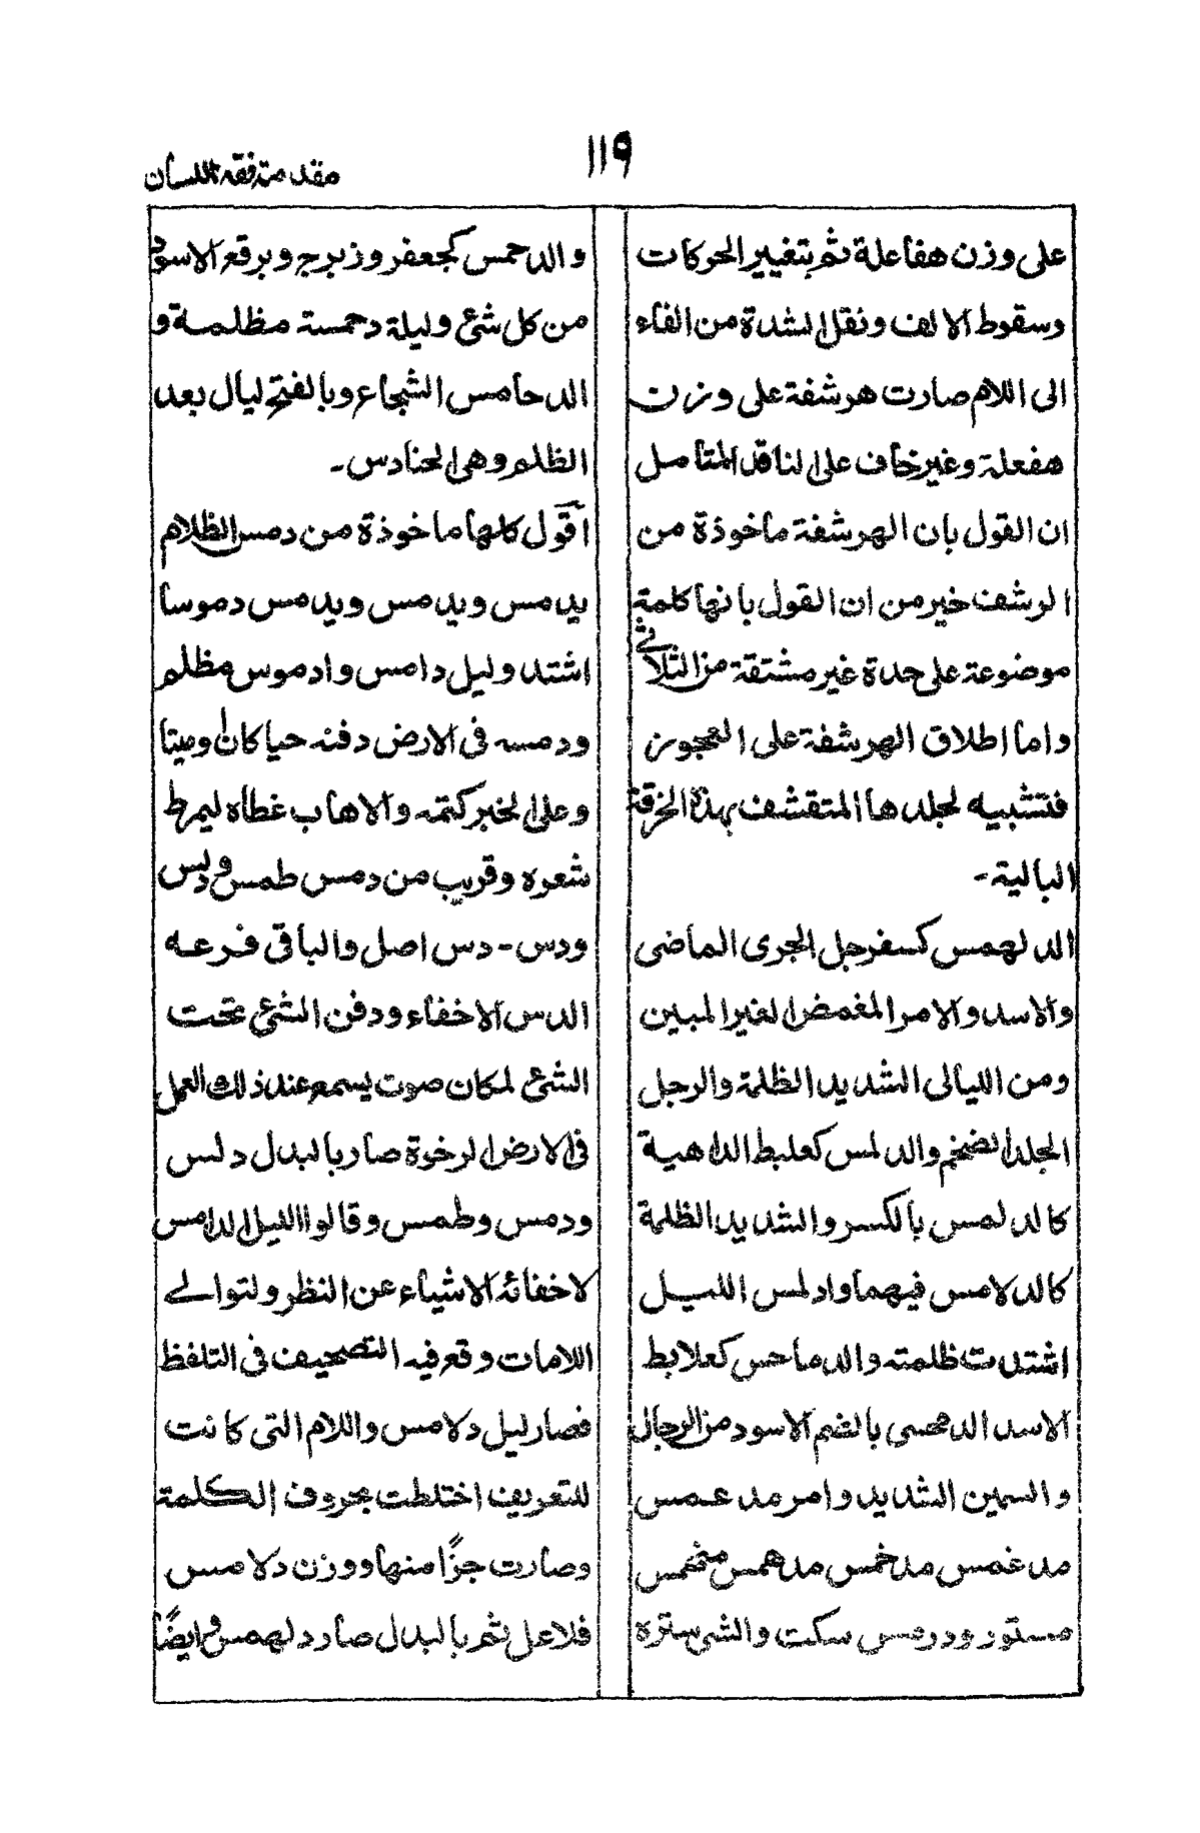 ١١٩
مقدمة فقه اللسان
على وزن هفاعلة ثم بتغيير الحركات
وسقوط الالف ونقل الشدة من الفاء
الى اللام صارت هرشفة على وزن
هفعلة وغير خاف على الناقد المتامل
ان القول بان الهرشفة ماخوذة من
الرشف خير من ان القول بانها كلمة
موضوعة على حدة غير مشتقة من الثلاثي
واما اطلاق الهرشفة على العجوز
فتشبيه لجلدها المتقشف بهذه الخرقة
البالية -
الدلهمس كسفرجل الجرى الماضى
والاسد والامر المغمض الغير المبين
ومن الليالى الشديد الظلمة والرجل
الجلد الضخم والدلمس كعلبط الداهية
كالدلمس بالكسر والشديد الظلمة
كالدلامس فيهما وادلمس الليل
اشتدت ظلمته والدماحس كعلابط
الاسد الدمحسى بالضم الاسود من الرجال
والسمين الشديد وامر مدعمس
مدغمس مدخمس مدهمس منهمس
مستور ودرمس سكت والشى ستره
والدحمس كجعفر وزبرج وبرقع الاسود
من كل شئ وليلة دحمسة مظلمة و
الدحامس الشجاع وبالفتح ليال بعد
الظلم وهى الحنادس -
اقول كلها ماخوذة من دمس الظلام
يدمس ويدمس ويدمس دموسا
اشتد وليل دامس وادموس مظلم
ودمسه فى الارض دفنه حيا كان او ميتا
وعلى الخبر كتمه والاهاب غطاه ليمرط
شعره وقريب من دمس طمس و دلس
ودس - دس اصل والباقى فرعه
الدس الاخفاء ودفن الشئ تحت
الشئ لمكان صوت يسمع عند ذلك العمل
فى الارض الرخوة صار بالبدل دلس
ودمس وطمس وقالوا الليل الدامس
لاخفائه الاشياء عن النظر ولتوالے
اللامات وقع فيه التصحيف فى التلفظ
فصار ليل دلامس واللام التى كانت
للتعريف اختلطت بحروف الكلمة
وصارت جزًا منها ووزن دلامس
فلاعل ثم بالبدل صار دلهمس وايضًا